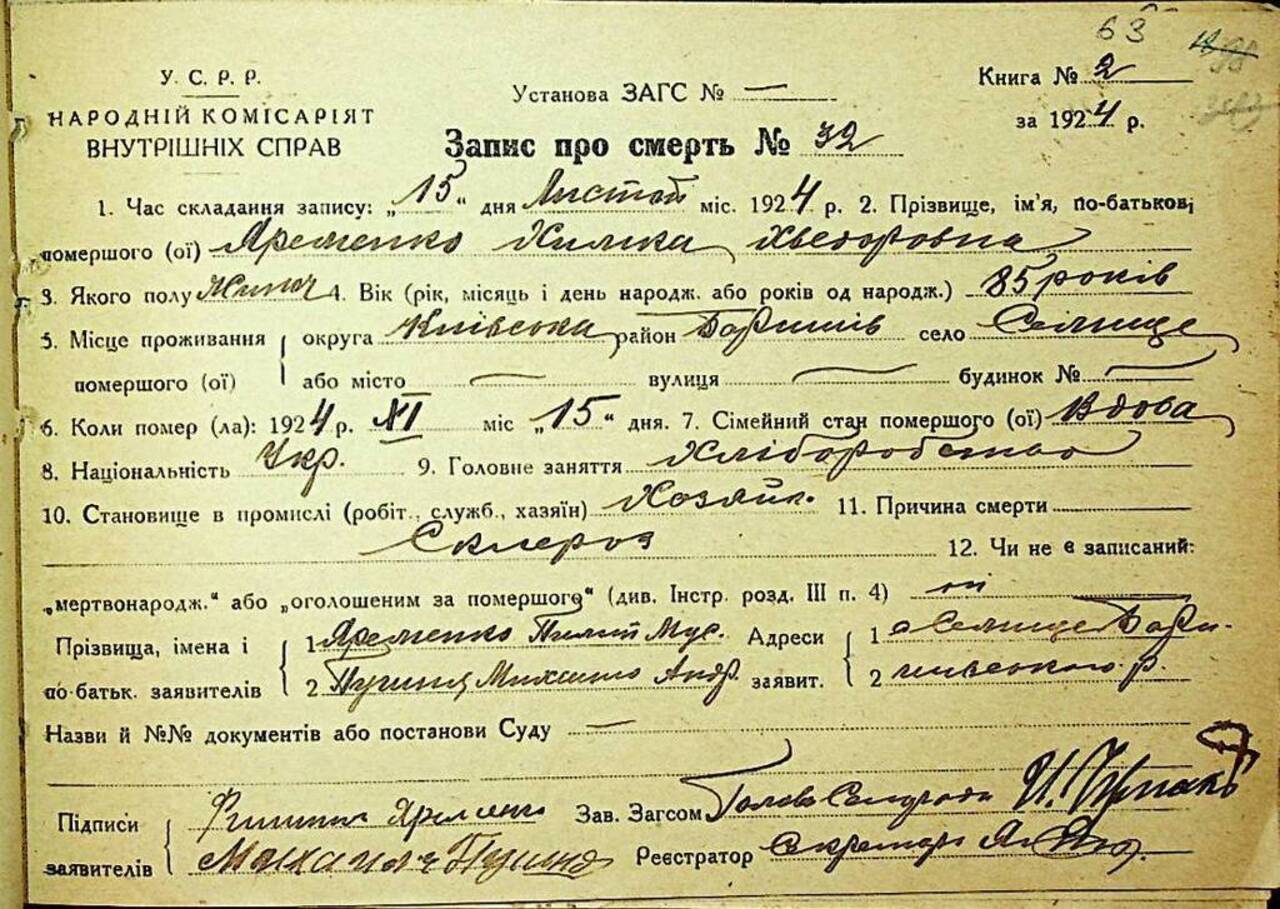 63
У. С. Р. Р.
НАРОДНІЙ КОМІСАРІЯТ
ВНУТРІШНІХ СПРАВ
Установа ЗАГС № —
Книга № 2
за 1924 р.
Запис про смерть № 32
1. Час складання запису: „15“ дня Листоп міс. 1924 р. 2. Прізвище, ім'я, по-батькові
помершого (ої) Яременко Химка Хведоровна
3. Якого полу Жіноч 4. Вік (рік, місяць і день народж. або років од народж.) 85 років
5. Місце проживання округа Київська район Баришів село Селище
помершого (ої) або місто — вулиця — будинок № —
6. Коли помер (ла): 1924 р. XI міс „15“ дня. 7. Сімейний стан помершого (ої) Вдова
8. Національність Укр. 9. Головне заняття Хліборобство
10. Становище в промислі (робіт., служб., хазяїн) Хозяйк. 11. Причина смерти
Склероз 12. Чи не є записаний:
„мертвонародж.“ або „оголошеним за помершого“ (див. Інстр. розд. III п. 4) ні
Прізвища, імена і 1 Яременко Пилип Мус. Адреси 1 с Селище Бари-
по батьк. заявителів 2 Пугина Михайло Андр. заявит. 2 шивського р.
Назви й №№ документів або постанови Суду —
Підписи Яременко Зав. Загсом Голова Сельради И.
заявителів Пугина Реєстратор Секретарь